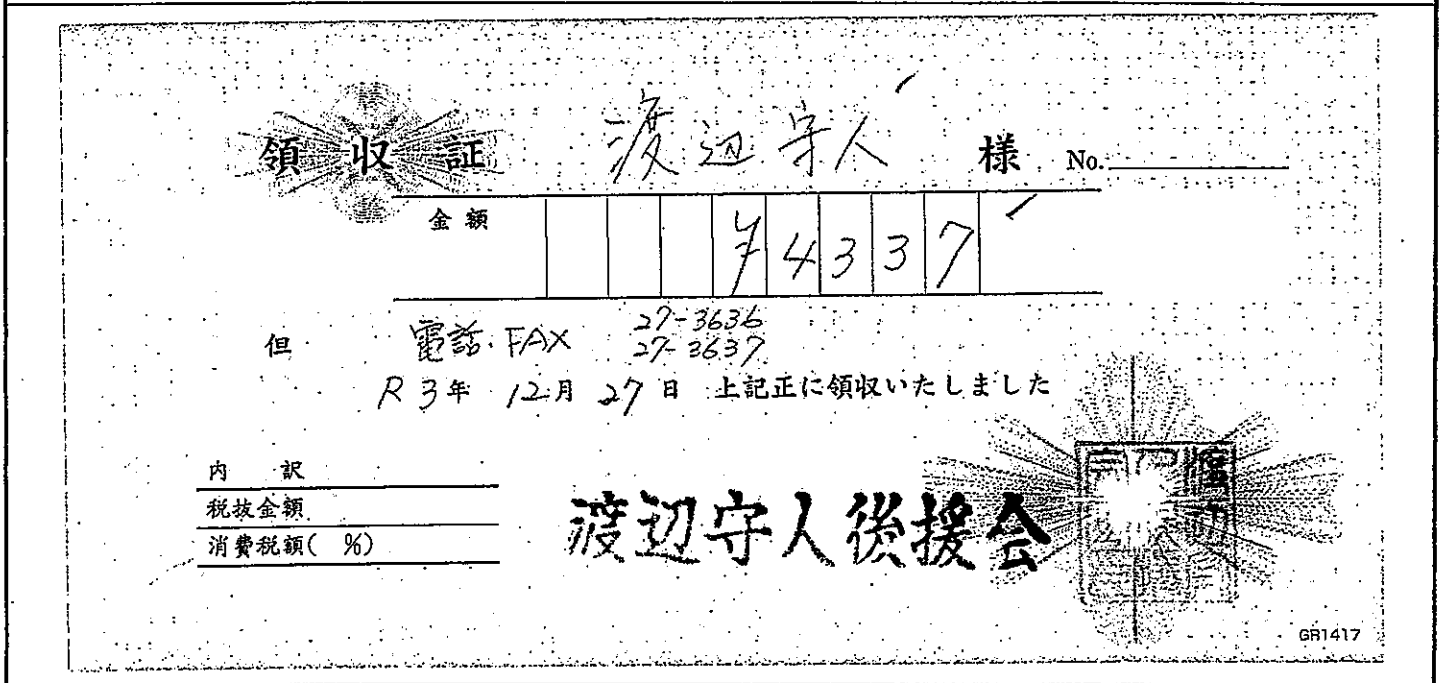 領収証 渡辺守人 様 No.
金額 ¥4337
但 電話・FAX 27-3636
27-3637
R3年 12月 27日 上記正に領収いたしました
内 訳
税抜金額
消費税額( %)
渡辺守人後援会
GR1417